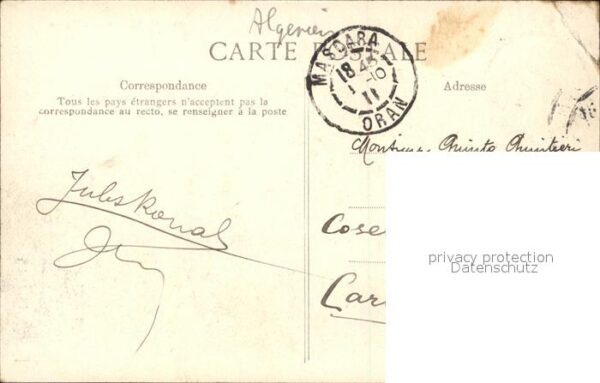 Algerien
CARTE POSTALE
MASCARA
18 45
1 -10
11
ORAN
Correspondance
Adresse
Tous les pays étrangers n'acceptent pas la
correspondance au recto, se renseigner à la poste
Monsieur Quinto
Cose
Car
privacy protection
Datenschutz